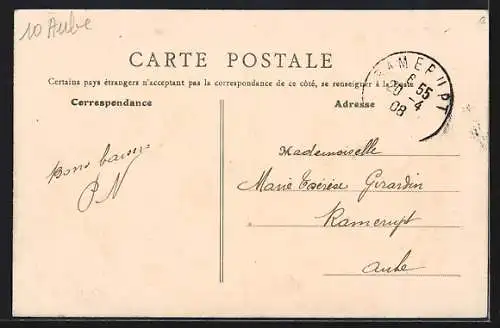 10 Aube
CARTE POSTALE
Certains pays étrangers n'acceptant pas la correspondance de ce côté, se renseigner à la Poste
Correspondance
Adresse
RAMERUPT
6 55
20 - 4
08
Bons baisers
PN
Mademoiselle
Marie Thérèse Girardin
Ramerupt
Aube